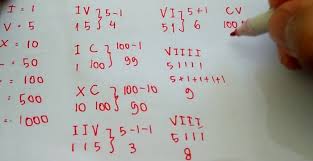 I = 1
V = 5
X = 10
= 50
= 100
= 500
= 1000
I V } 5-1
1 5 } 4
I C } 100-1
1 100 } 99
X C } 100-10
10 100 } 90
I I V } 5-1-1
1 1 5 } 3
V I } 5+1
5 1 } 6
V I I I I
5 1 1 1 1
5+1+1+1+1
9
V I I I
5 1 1 1
8
C V
100